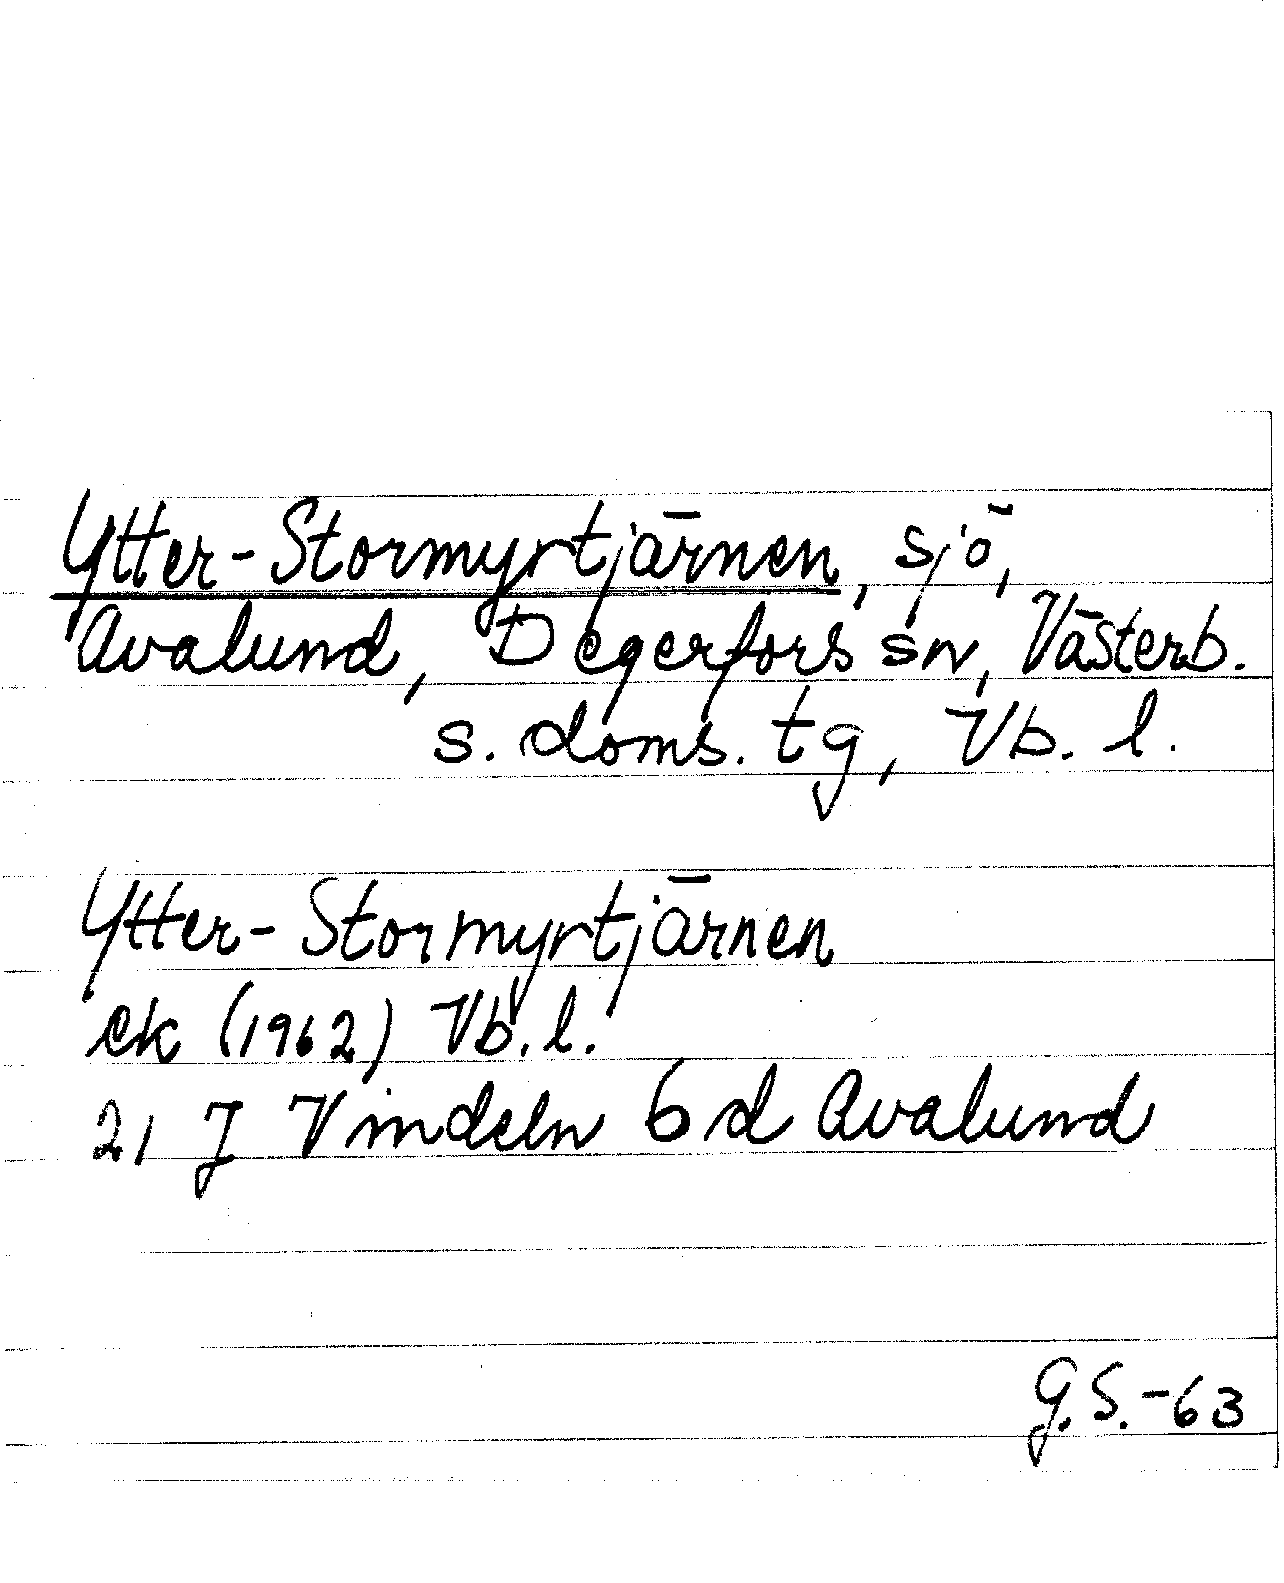 Ytter-Stormyrtjärnen, sjö,
Avalund, Degerfors sn, Västerb.
s. doms. tg, Vb. l.
Ytter-Stormyrtjärnen
ek (1962) Vb. l.
21 J Vindeln 6 d Avalund
G.S.-63